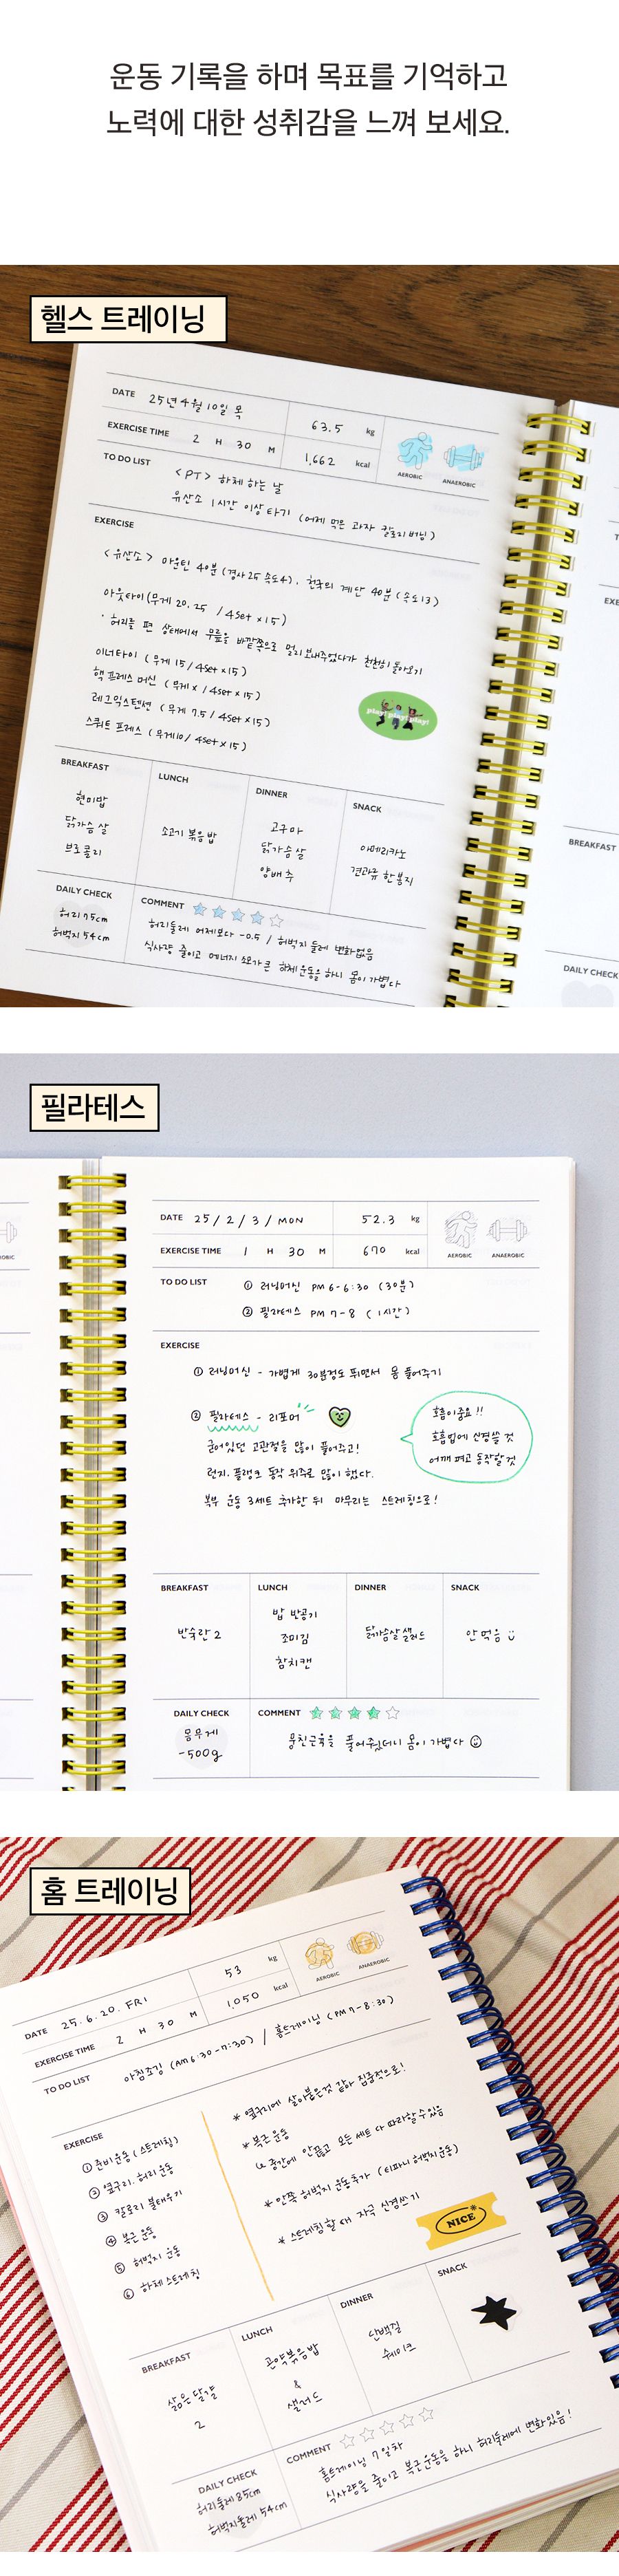 운동 기록을 하며 목표를 기억하고
노력에 대한 성취감을 느껴 보세요.
헬스 트레이닝
DATE 25년 4월 10일 목 63.5 kg
EXERCISE TIME 2 H 30 M 1,662 kcal
AEROBIC ANAEROBIC
TO DO LIST <PT> 하체 하는 날
유산소 1시간 이상 타기 (어제 먹은 과자 칼로리 버닝)
EXERCISE
<유산소> 마운틴 40분 (경사 25 속도4), 천국의 계단 40분 (속도 13)
아웃타이 (무게 20, 25 / 4set x 15)
· 허리를 편 상태에서 무릎을 바깥쪽으로 멀리 보내주었다가 천천히 돌아오기
이너타이 (무게 15 / 4set x 15)
핵 프레스 머신 (무게 x / 4set x 15)
레그익스텐션 (무게 7.5 / 4set x 15)
스쿼트 프레스 (무게10 / 4set x 15)
play! play! play!
BREAKFAST LUNCH DINNER SNACK
현미밥
닭가슴살
브로콜리
소고기 볶음밥
고구마
닭가슴살
양배추
아메리카노
견과류 한봉지
DAILY CHECK
허리 75cm
허벅지 54cm
COMMENT
허리둘레 어제보다 -0.5 / 허벅지 둘레 변화없음
식사량 줄이고 에너지 소모가 큰 하체운동을 하니 몸이 가볍다
EXE
BREAKFAST
DAILY CHECK
필라테스
DATE 25 / 2 / 3 / MON 52.3 kg
EXERCISE TIME 1 H 30 M 670 kcal
AEROBIC ANAEROBIC
TO DO LIST ① 러닝머신 PM 6-6:30 (30분)
② 필라테스 PM 7-8 (1시간)
EXERCISE
① 러닝머신 - 가볍게 30분정도 뛰면서 몸 풀어주기
② 필라테스 - 리포머
굳어있던 고관절을 많이 풀어주고!
런지, 플랭크 동작 위주로 많이 했다.
복부 운동 3세트 추가한 뒤 마무리는 스트레칭으로!
호흡이 중요!!
호흡법에 신경쓸 것
어깨 펴고 동작할 것
BREAKFAST LUNCH DINNER SNACK
반숙란 2
밥 반공기
조미김
참치캔
닭가슴살 샐러드
안 먹음
DAILY CHECK
몸무게
-500g
COMMENT
뭉친근육을 풀어주었더니 몸이 가볍다
홈 트레이닝
DATE 25. 6. 20. FRI 53 kg
EXERCISE TIME 2 H 30 M 1,050 kcal
AEROBIC ANAEROBIC
TO DO LIST 아침조깅 (AM 6:30-7:30) / 홈트레이닝 (PM 7-8:30)
EXERCISE
① 준비운동 (스트레칭)
② 옆구리, 허리 운동
③ 칼로리 불태우기
④ 복근 운동
⑤ 허벅지 운동
⑥ 하체 스트레칭
* 옆구리에 살이붙은것 같아 집중적으로!
* 복근 운동
↳ 중간에 안끊고 모든세트 다 따라할 수 있음
* 안쪽 허벅지 운동추가 (티파니 허벅지운동)
* 스트레칭할 때 자극 신경쓰기
NICE
BREAKFAST LUNCH DINNER SNACK
삶은달걀
2
곤약볶음밥
&
샐러드
단백질
쉐이크
DAILY CHECK
허리둘레 85cm
허벅지둘레 54cm
COMMENT
홈트레이닝 7일차
식사량을 줄이고 복근운동을 하니 허리둘레에 변화있음!